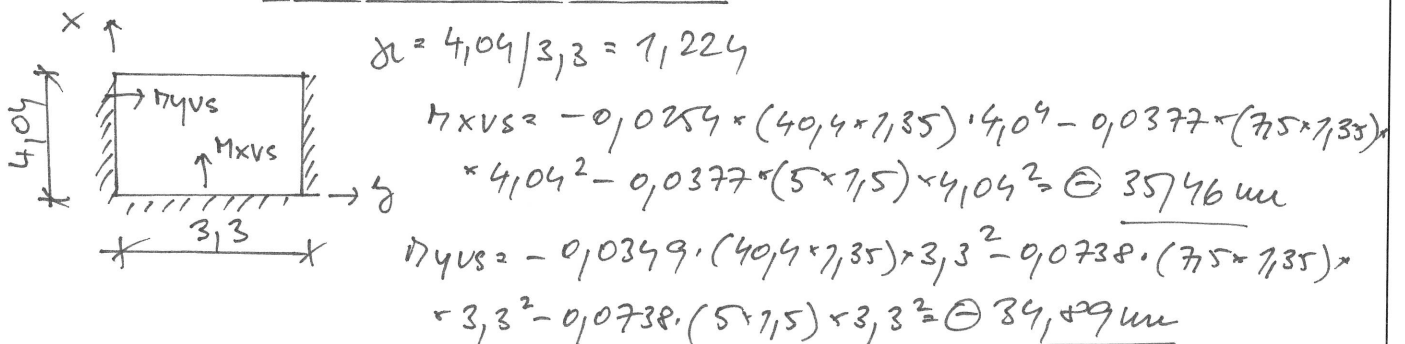 x
γ = 4,04/3,3 = 1,224
Myvs
Mxvs
4,04
y
3,3
Mxvs = -0,0254 × (40,4 × 1,35) · 4,04 - 0,0377 × (7,5 × 1,35) ×
× 4,04² - 0,0377 × (5 × 1,5) × 4,04² = ⊖ 35,46
Myvs = -0,0349 · (40,4 × 1,35) × 3,3² - 0,0738 · (7,5 × 1,35) ×
× 3,3² - 0,0738 · (5 × 1,5) × 3,3² = ⊖ 34,89